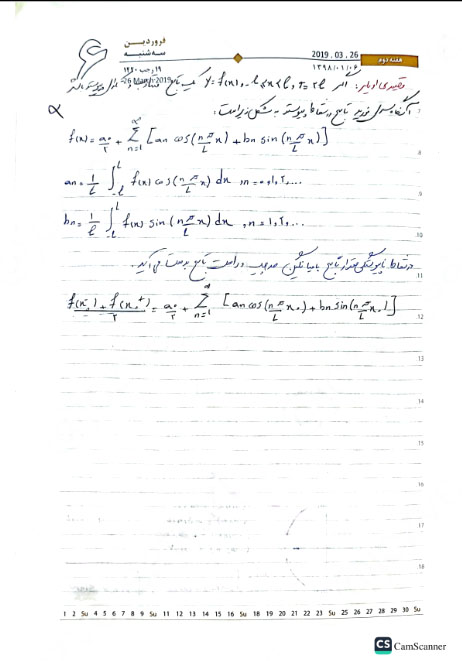 فروردین
سه شنبه
۱۹ رجب ۱۴۴۰
26 March 2019
2019 . 03 . 26
۱۳۹۸/۰۱/۰۶
هفته دوم
۶
قضیه‌ی اویلر: اگر y = f(x), -l ≤ x ≤ l, T = 2l یک تابع
آنگاه سری فوریه تابع در نقاط پیوسته به شکل زیر است:
f(x) = a₀/۲ + ∑_{n=1}^{∞} [an cos(nπ/L x) + bn sin(nπ/L x)]
an = 1/l ∫_{-L}^{L} f(x) cos(nπ/L x) dx , n = ۰,۱,۲,...
bn = 1/l ∫_{-L}^{L} f(x) sin(nπ/L x) dx , n = ۱,۲,...
در نقاط ناپیوستگی مقدار تابع با میانگین حد چپ و راست تابع بدست می‌آید.
f(x₀⁻) + f(x₀⁺)/۲ = a₀/۲ + ∑_{n=1}^{∞} [an cos(nπ/L x₀) + bn sin(nπ/L x₀)]
8
9
10
11
12
13
14
15
16
17
18
1 2 Su 4 5 6 7 8 9 Su 11 12 13 14 15 16 Su 18 19 20 21 22 23 Su 25 26 27 28 29 30 Su
CS CamScanner